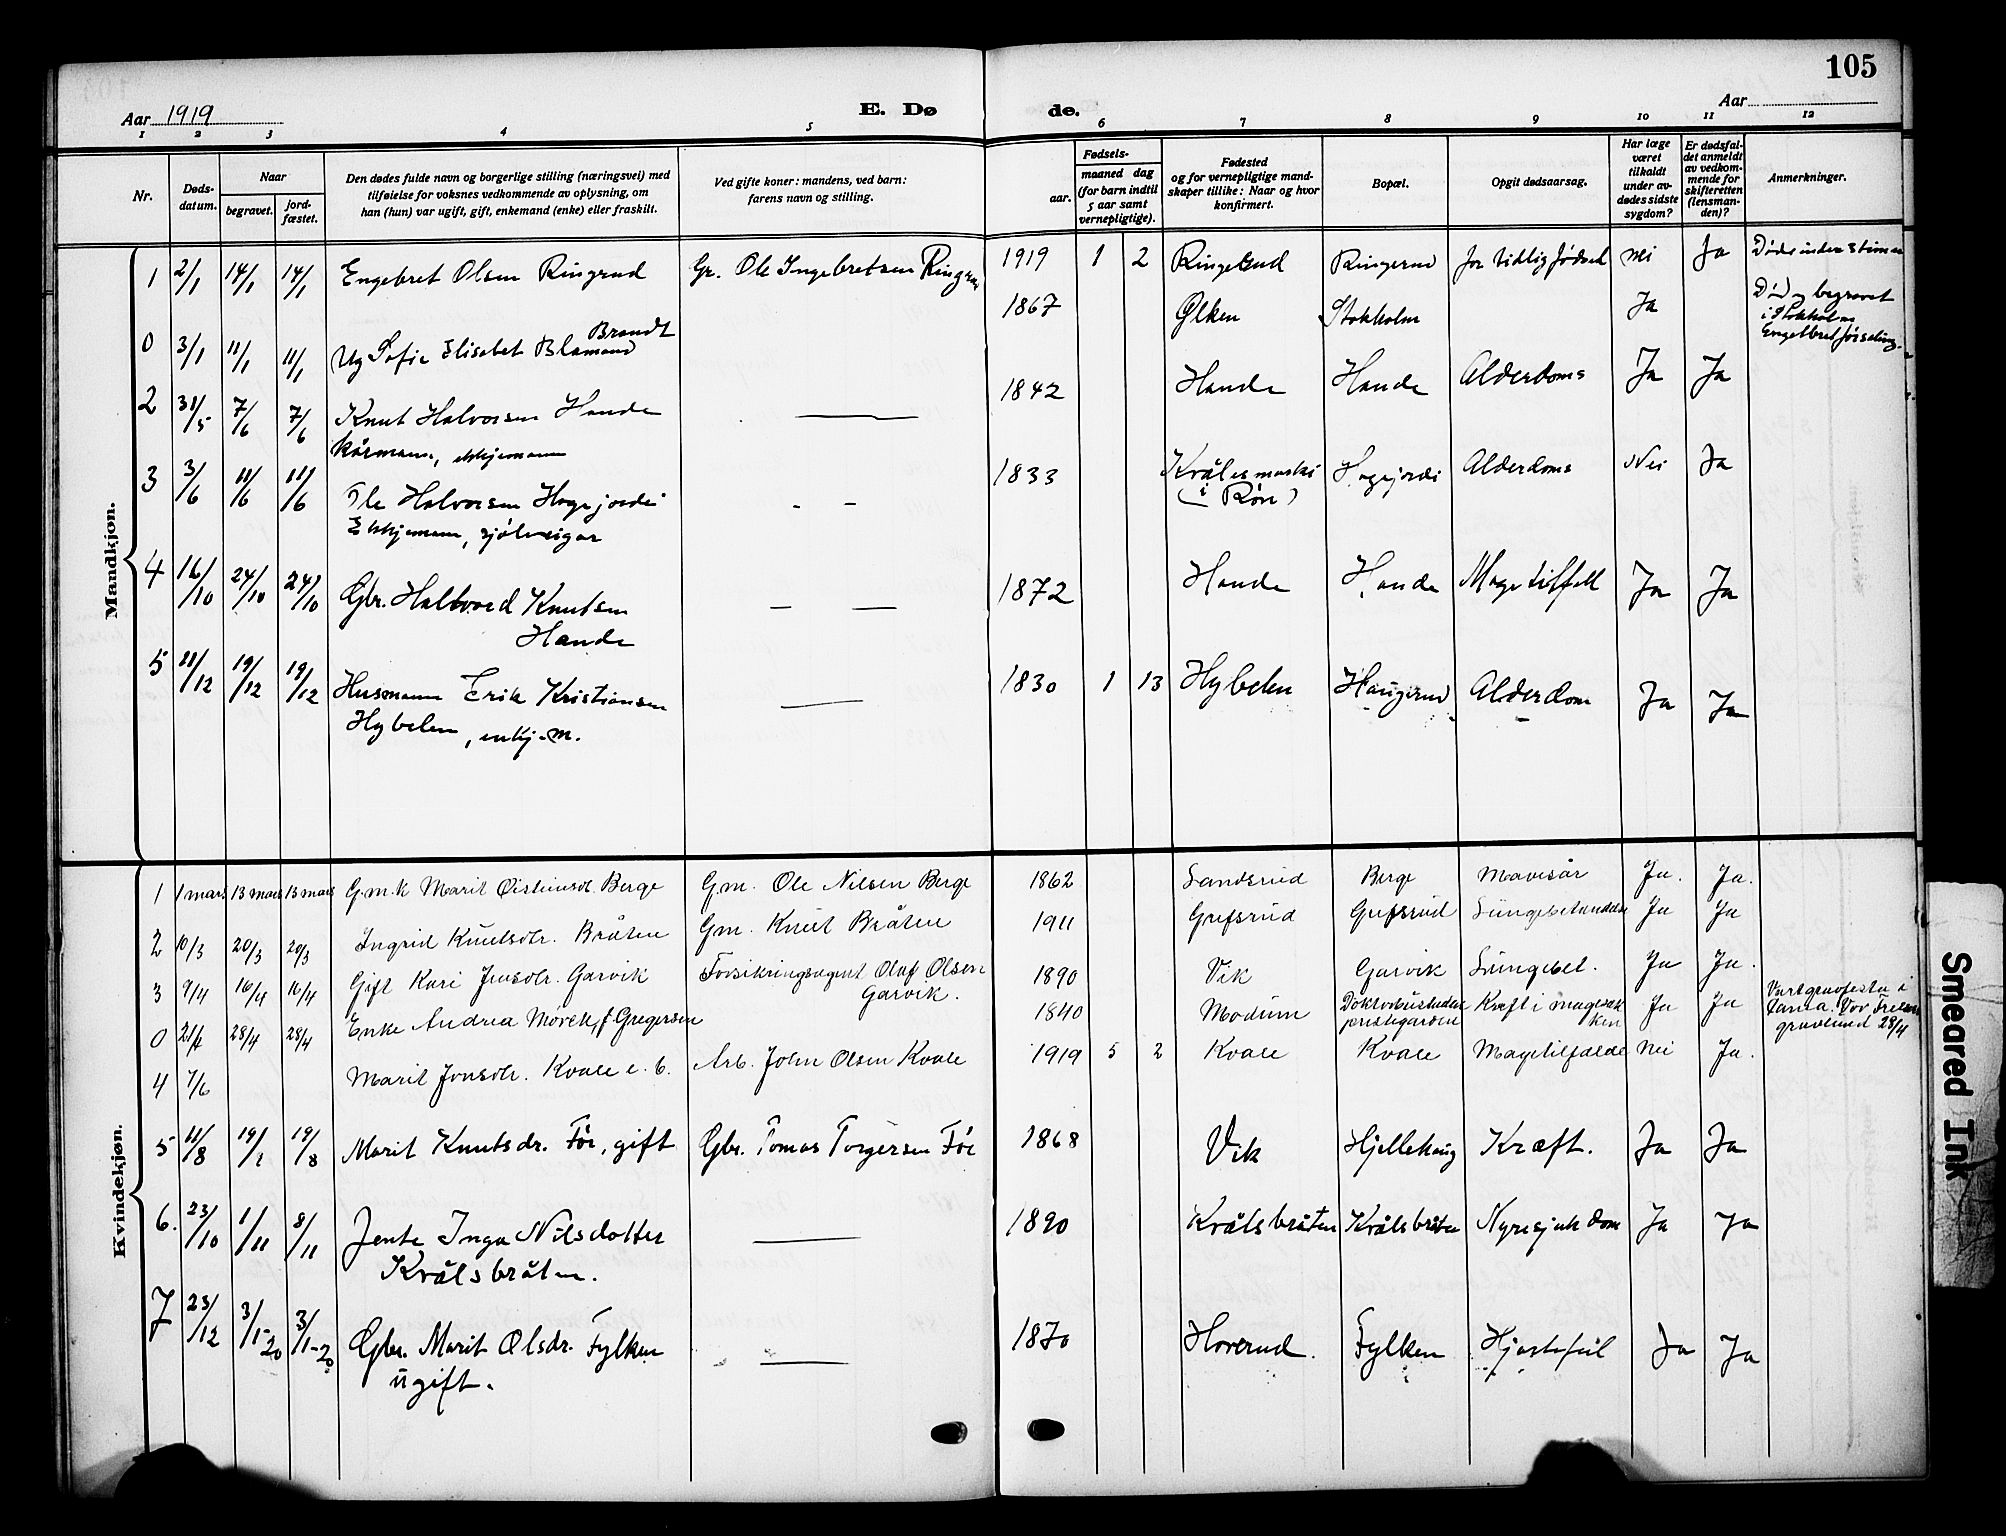 105
Aar 1919
E. Dø de.
Aar
1 2 3 4 5 6 7 8 9 10 11 12
Nr.
Døds-
datum.
Naar
begravet.
jord-
fæstet.
Den dødes fulde navn og borgerlige stilling (næringsvei) med
tilføielse for voksnes vedkommende av oplysning, om
han (hun) var ugift, gift, enkemand (enke) eller fraskilt.
Ved gifte koner: mandens, ved barn:
farens navn og stilling.
Fødsels-
aar.
maaned dag
(for barn indtil
5 aar samt
vernepligtige).
Fødested
og for vernepligtige mand-
skaper tillike: Naar og hvor
konfirmert.
Bopæl.
Opgit dødsaarsag.
Har læge
været
tilkaldt
under av-
dødes sidste
sygdom?
Er dødsfal-
det anmeldt
av vedkom-
mende for
skifteretten
(lensman-
den)?
Anmerkninger.
Maandkjøn.
1 2/1 14/1 14/1 Engebret Olsen Ringrud Gr. Ole Ingebretsen 1919 1 2 Ringerud Ringerud for tidlig fødsel nei Ja
0 3/1 11/1 11/1 Ug Sofie Elisabet Brandt 1867 Ølken Stokholm Ja Død og begravet
i Stokholm
2 31/5 7/6 7/6 Knut Halvorsen Hande 1842 Hande Hande Alderdoms Ja Ja
kårmann, ekkjemann
3 3/6 11/6 11/6 Ole Halvorsen Hagejordi - - 1833 Alderdoms Nei Ja
(i Røn)
Ekkjemann, sjøleigar
4 16/10 24/10 24/10 Gbr. Hallvard Knutsen 1872 Hande Hande Magetilfell Ja Ja
Hande
5 11/12 19/12 19/12 Husmann Erik Kristiansen 1830 1 13 Hybelen Haugerud Alderdom Ja Ja
Hybelen, enkj.m.
Kvindekjøn.
1 1 mars 13 mars 13 mars G.m.k Marit Øistensdr. Berge G.m. Ole Nilsen Berge 1862 Sandsrud Berge Mavesår Ja. Ja.
2 10/3 20/3 20/3 Ingrid Knutsdtr. Bråten Gm. Knut Bråten 1911 Grefsrud Grefsrud Lungebetændelse Ja Ja
3 9/4 16/4 16/4 Gift Kari Jensdtr. Garvik Forsikringsagent Olaf Olsen 1890 Vik Garvik Lungebet. Ja Ja.
Garvik.
0 21/4 28/4 28/4 Enke Andrea Mørch, f Gregersen 1840 Modum Kræft i magesæk Ja Ja
prestegarden ken
gravlund 28/4
4 7/6 Marit Jonsdtr. Kvale e. b. Arb. John Olsen Kvale 1919 5 2 Kvale Kvale Magetilfælde Nei Ja.
5 11/8 19/8 Marit Knutsdr. Føi, gift Gbr. Tomas Torgersen Føi 1868 Vik Hjellehaug Kræft. Ja Ja
6. 23/10 1/11 8/11 Jente Inga Nilsdotter 1890 Krålsbråten Krålsbråten Nyresjukdom Ja Ja
Krålsbråten.
7 23/12 3/1-20 3/1-20 Gbr. Marit Olsdr. Fylken 1870 Hovrud. Fylken Hjartefeil Ja Ja
ugift.
Smeared Ink